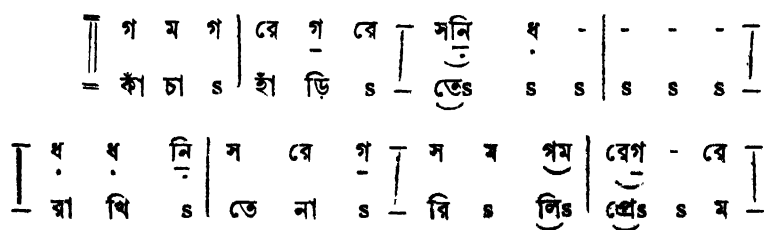 গ ম গ | রে গ রে | সনি ধ - | - - -
কাঁ চা s হাঁ ড়ি s তেs s s s s s
ধ ধ নি | স রে গ | স ম গম | রেগ - রে
রা খি s | তে না s রি s লিs প্রেs s ম